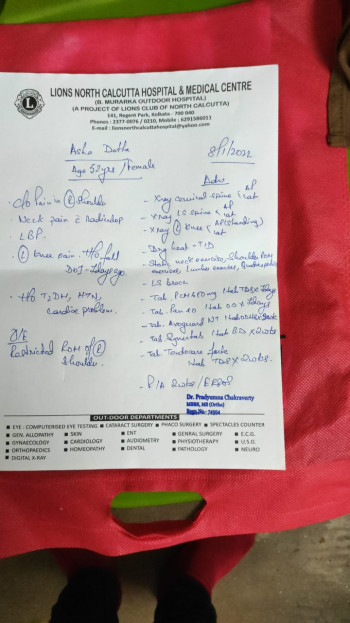 LIONS NORTH CALCUTTA HOSPITAL & MEDICAL CENTRE
(B. MURARKA OUTDOOR HOSPITAL)
(A PROJECT OF LIONS CLUB OF NORTH CALCUTTA)
141, Regent Park, Kolkata - 700 040
Phones : 2377-0076 / 0210, Mobile : 6291586011
E-mail : lionsnorthcalcuttahospital@yahoo.com
L
Asha Dutta
Age 52yrs / Female
8/1/2022
C/o Pain in Shoulder
Neck pain
LBP
Knee pain. H/o fall
H/o T2DM, HTN,
cardiac problem.
O/E
Restricted ROM of
Shoulder
Adv
- Xray cervical spine AP lat
- Xray LS spine AP lat
- Xray Knee AP (standing) lat
- Dry heat - TID
- neck exercise, Shoulder ROM
exercise, Lumbar exercise, Quadriceps
- LS brace
- Tab. PCM 650mg TDS
- Tab. Pan 40
- Tab.
- Tab.
- Tab. forte
TDS x 2wks.
- R/A 2wks /
Dr. Pradyumna Chakraverty
MBBS, MS (Ortho)
Regn. No.- 74504
OUT-DOOR DEPARTMENTS
■ EYE : COMPUTERISED EYE TESTING ■ CATARACT SURGERY ■ PHACO SURGERY ■ SPECTACLES COUNTER
■ GEN. ALLOPATHY ■ SKIN ■ ENT ■ GENRAL SURGERY ■ E.C.G.
■ GYNAECOLOGY ■ CARDIOLOGY ■ AUDIOMETRY ■ PHYSIOTHERAPY ■ U.S.G.
■ ORTHOPAEDICS ■ HOMEOPATHY ■ DENTAL ■ PATHOLOGY ■ NEURO
■ DIGITAL X-RAY